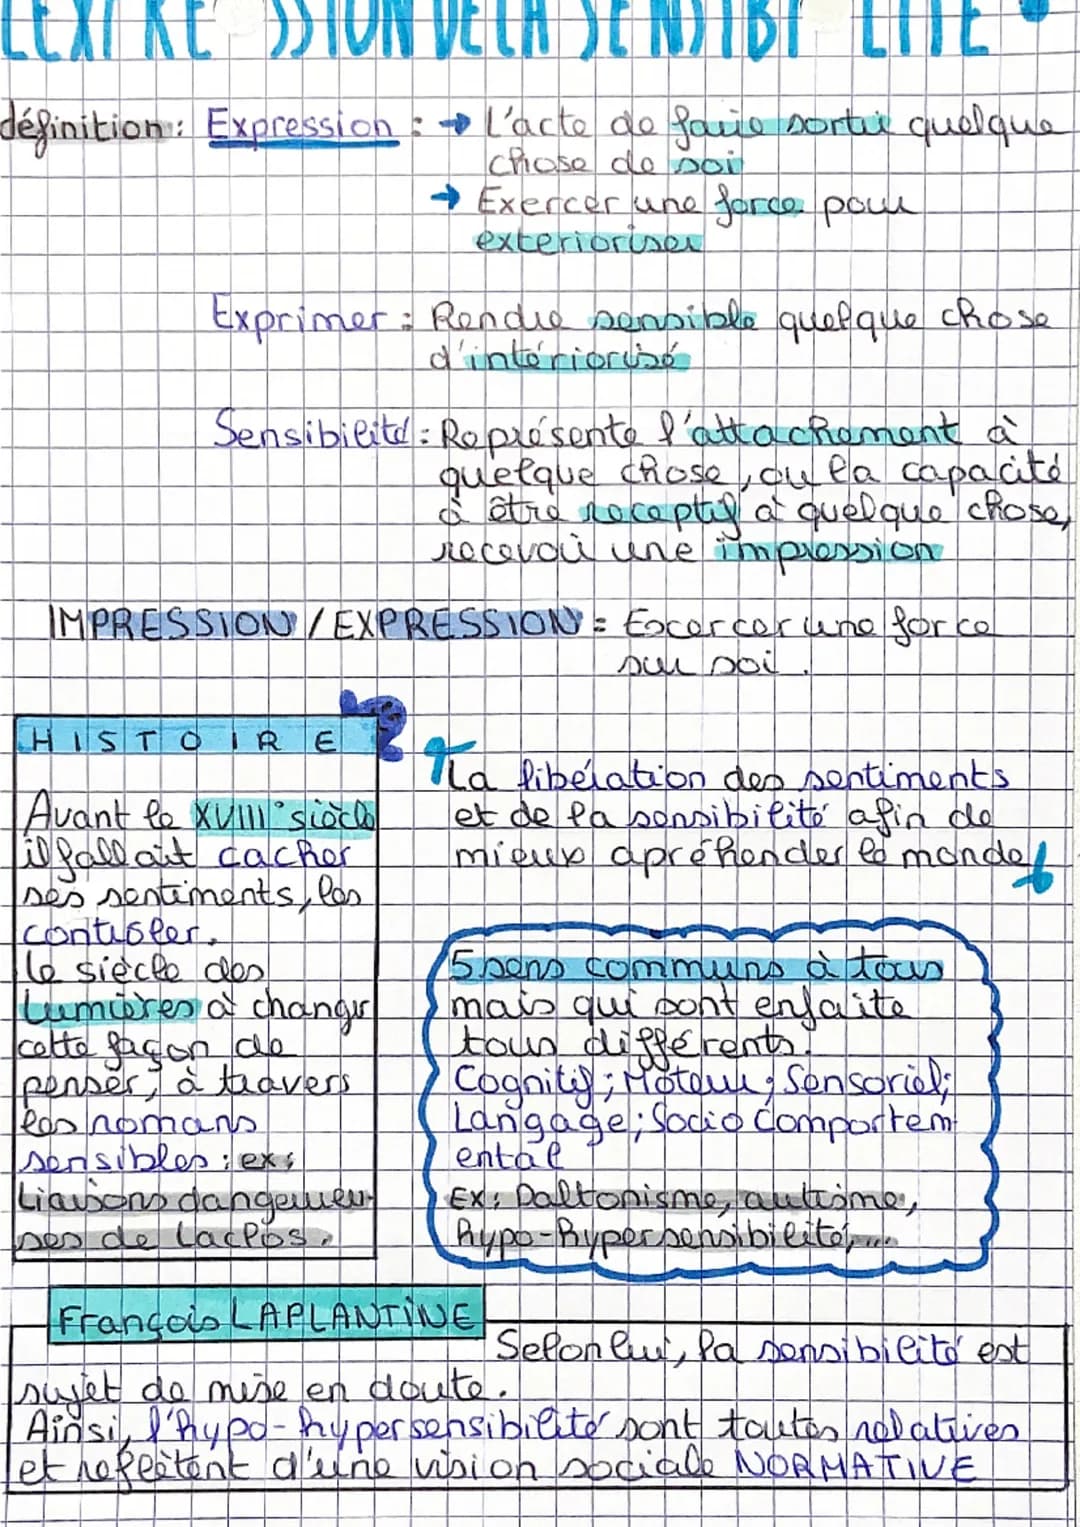 L'EXPRESSION DE LA SENSIBILITÉ
définition : Expression : → L'acte de faire sortir quelque
chose de soi
→ Exercer une force pour
exterioriser
Exprimer : Rendre sensible quelque chose
d'intériorisé
Sensibilité : Représente l'attachement à
quelque chose, ou la capacité
à être receptif à quelque chose,
recevoir une impression
IMPRESSION / EXPRESSION = Excercer une force
sur soi.
HISTOIRE
Avant le XVIII° siècle
il fallait cacher
ses sentiments, les
controler.
Le siècle des
Lumières à changer
cette façon de
penser, à travers
les romans
sensibles : ex :
Liaisons dangereu-
ses de Laclos.
La libération des sentiments
et de la sensibilité afin de
mieux apréhender le monde
5 sens communs à tous
mais qui sont enfaite
tous différents.
Cognitif ; Moteur ; Sensoriel ;
Langage ; Socio Comportem-
ental
Ex : Daltonisme, autisme,
hypo-hypersensibilité, ...
François LAPLANTINE
Selon lui, la sensibilité est
sujet de mise en doute.
Ainsi, l'hypo-hypersensibilité sont toutes relatives
et reflètent d'une vision sociale NORMATIVE